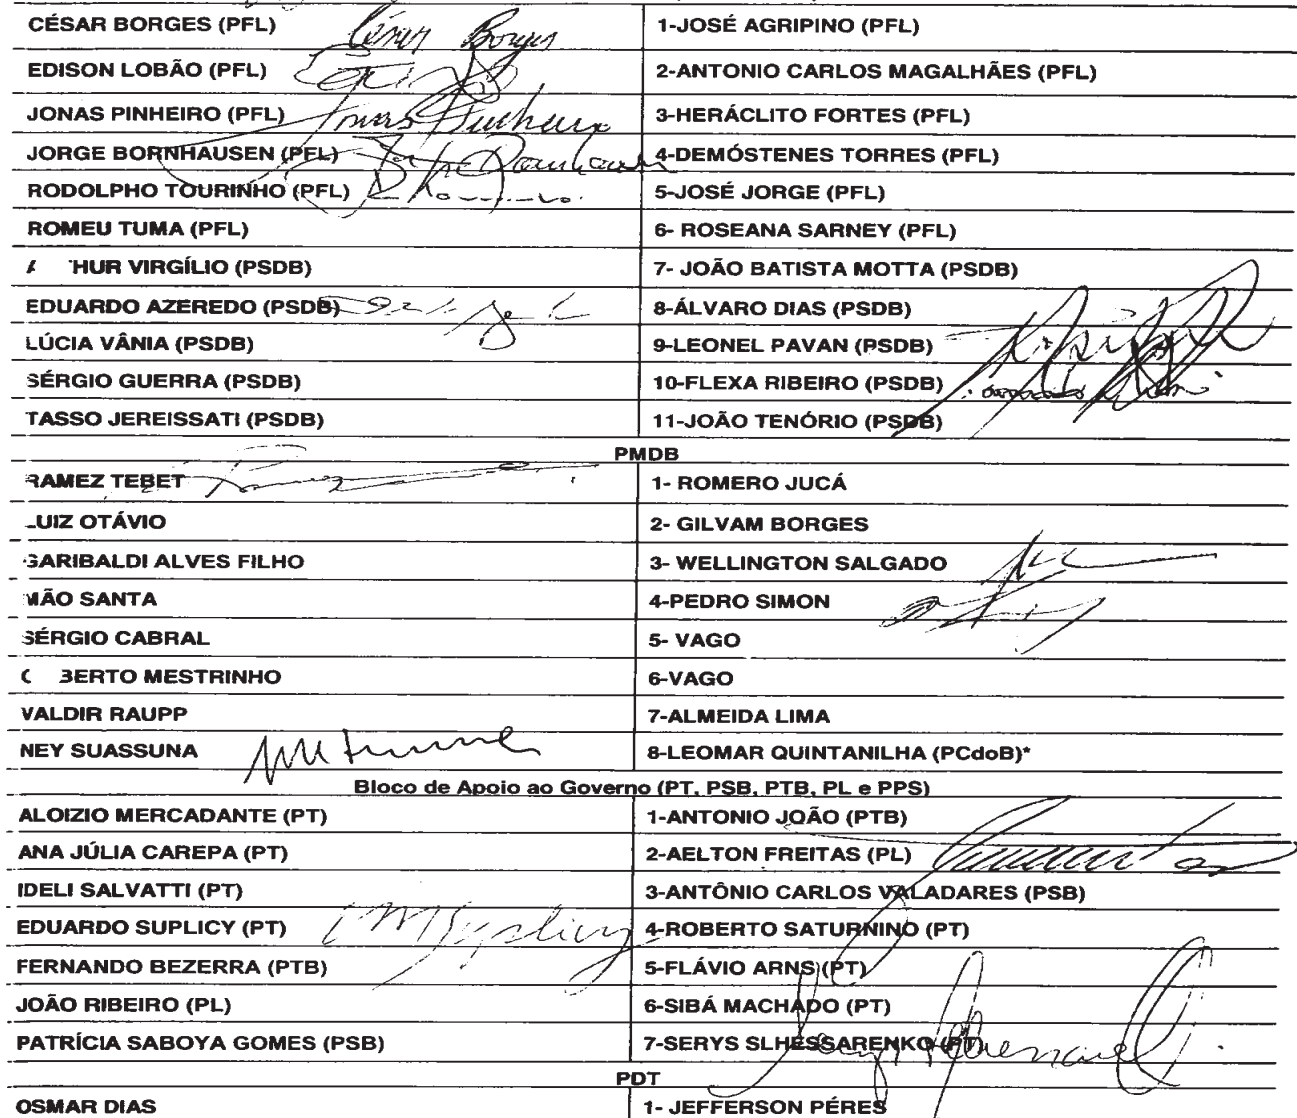 CÉSAR BORGES (PFL) César Borges 1-JOSÉ AGRIPINO (PFL)
EDISON LOBÃO (PFL) 2-ANTONIO CARLOS MAGALHÃES (PFL)
JONAS PINHEIRO (PFL) Jonas Pinheiro 3-HERÁCLITO FORTES (PFL)
JORGE BORNHAUSEN (PFL) 4-DEMÓSTENES TORRES (PFL)
RODOLPHO TOURINHO (PFL) 5-JOSÉ JORGE (PFL)
ROMEU TUMA (PFL) 6- ROSEANA SARNEY (PFL)
HUR VIRGÍLIO (PSDB) 7- JOÃO BATISTA MOTTA (PSDB)
EDUARDO AZEREDO (PSDB) 8-ÁLVARO DIAS (PSDB)
LÚCIA VÂNIA (PSDB) 9-LEONEL PAVAN (PSDB)
SÉRGIO GUERRA (PSDB) 10-FLEXA RIBEIRO (PSDB)
TASSO JEREISSATI (PSDB) 11-JOÃO TENÓRIO (PSDB)
PMDB
RAMEZ TEBET 1- ROMERO JUCÁ
LUIZ OTÁVIO 2- GILVAM BORGES
GARIBALDI ALVES FILHO 3- WELLINGTON SALGADO
MÃO SANTA 4-PEDRO SIMON
SÉRGIO CABRAL 5- VAGO
BERTO MESTRINHO 6-VAGO
VALDIR RAUPP 7-ALMEIDA LIMA
NEY SUASSUNA 8-LEOMAR QUINTANILHA (PCdoB)*
Bloco de Apoio ao Governo (PT, PSB, PTB, PL e PPS)
ALOIZIO MERCADANTE (PT) 1-ANTONIO JOÃO (PTB)
ANA JÚLIA CAREPA (PT) 2-AELTON FREITAS (PL)
IDELI SALVATTI (PT) 3-ANTÔNIO CARLOS VALADARES (PSB)
EDUARDO SUPLICY (PT) EMSuplicy 4-ROBERTO SATURNINO (PT)
FERNANDO BEZERRA (PTB) 5-FLÁVIO ARNS (PT)
JOÃO RIBEIRO (PL) 6-SIBÁ MACHADO (PT)
PATRÍCIA SABOYA GOMES (PSB) 7-SERYS SLHESSARENKO (PT)
PDT
OSMAR DIAS 1- JEFFERSON PÉRES